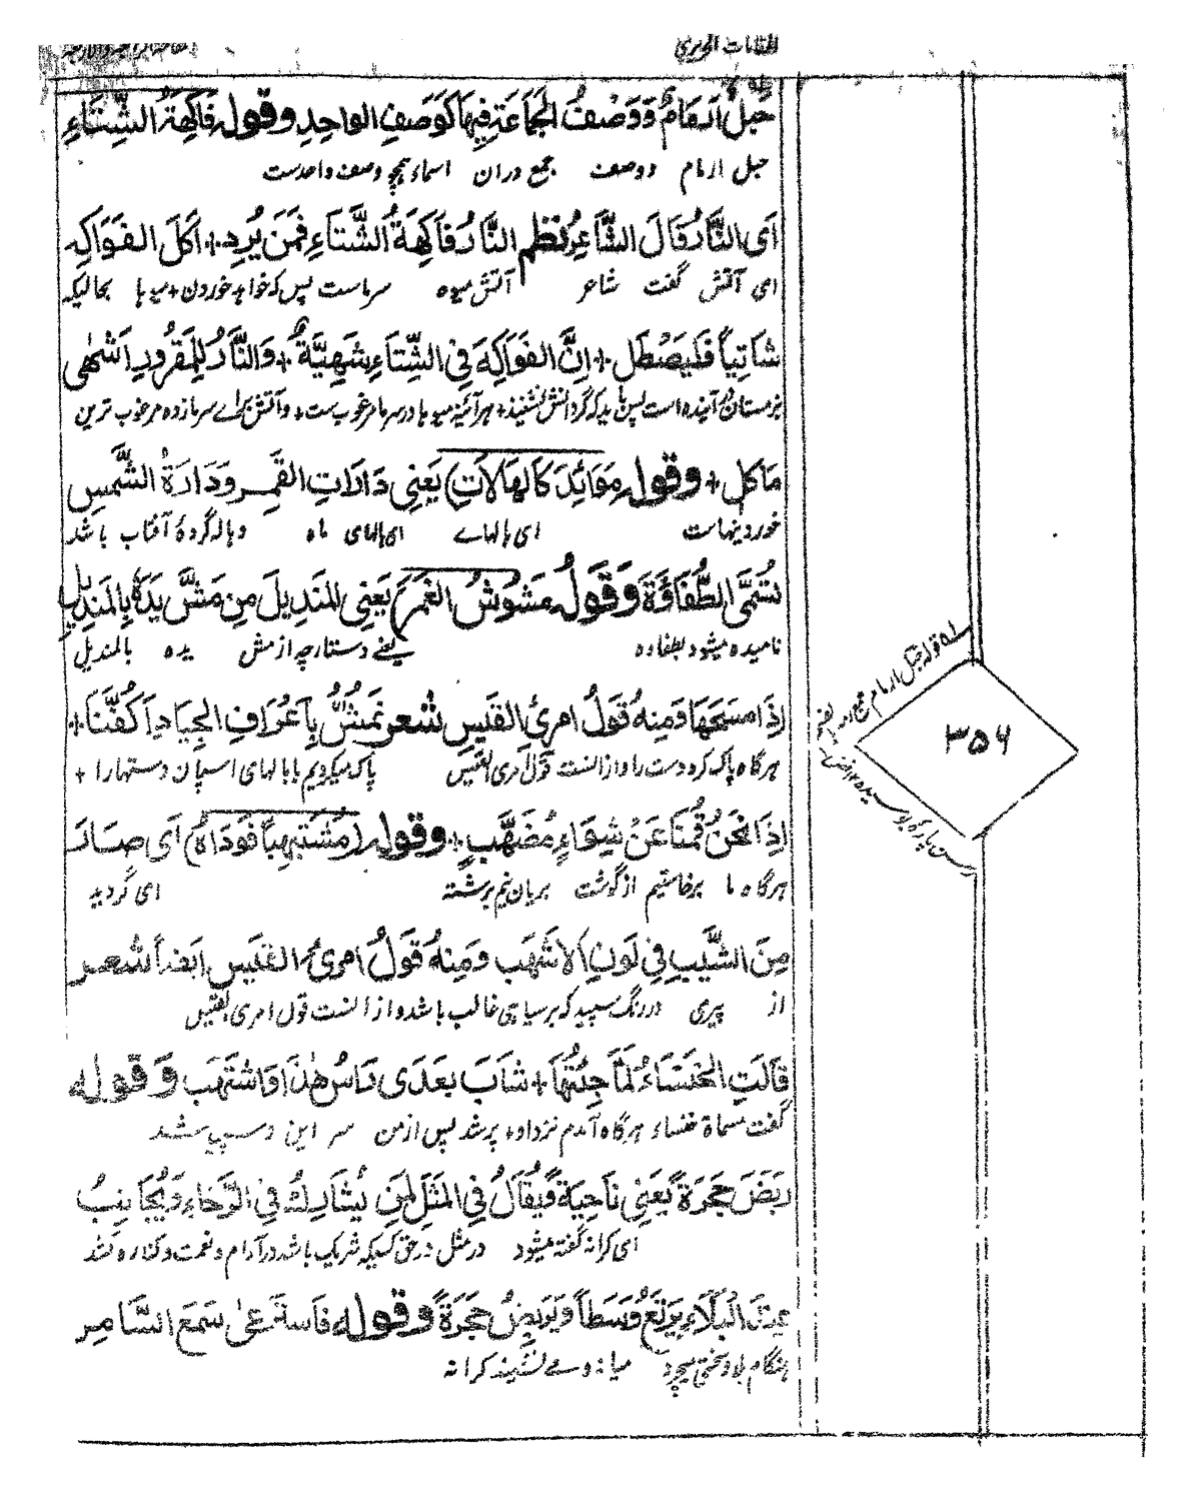 المقامات الحریری
حَبلٌ اَرمَامٌ وَوَصْفُ الجَمَاعَةِ فِيهَا كَوَصَفِ الواحِدِ وقوله فَاكِهَةُ الشِّتَاءِ
حبل ارمام ووصف جمع دران اسماء ہمچو وصف واحدست
اَى النَّارُ قَالَ الشَّاعِرُ نظم النَّارُ فَاكِهَةُ الشِّتَاءِ فَمَن يُرِد + اَكلَ الفَوَاكِهِ
ای آتش گفت شاعر آتش میوہ سرماست پس کہ خواہد خوردن + میوہا بحالیکہ
شَاتِياً فَليَصْطَلِ + اِنَّ الفَوَاكِهَ فِى الشِّتَاءِ شَهِيَّةٌ + وَالنَّارُ لِلمَقرُورِ اَشْهٰى
زمستان آیندہ است پس باید کہ گرد آتش نشیند + ہر آئینہ میوہا در سرما مرغوب ست + و آتش برائے سرمازدہ مرغوب ترین
مَاكل + وقوله مَوَائِدَ كَالهَالَاتِ) يَعنِى دَارَاتِ القَمَرِ وَدَارَةُ الشَّمسِ
خوردینہاست ای ہالہائے ای ہالہای ماہ وہالہ گردۂ آفتاب باشد
تُسَمَّى الطُّفَاوَةَ وَقَولُهُ مَشُوشُ الغَمَرِ) يَعنِى المَندِيلَ مِن مَشَّ يَدَهُ بِالمَندِيلِ
نامیدہ میشود بطفاوہ یعنے دستارچہ از مش یدہ بالمندیل
اِذَا مسَحَهَا وَمِنهُ قَولُ امرئِ القَيسِ شعر نَمُشُّ بِاَعرَافِ الجِيَادِ اَكُفَّنَا +
ہرگاہ پاک کرد دست را و از انست قول امری القیس پاک میکردیم ببالہای اسپان دستہارا +
اِذَا نَحنُ قُمنَا عَنْ شِوَاءٍ مُضَهَّبٍ + وقوله (مُشتَهِباً فَودَاهُ) اَى صَارَ
ہرگاہ ما برخاستیم از گوشت بریان نیم برشتہ ای گردید
مِنَ الشَّيبِ فِى لَونِ الاَشهَبِ وَمِنهُ قَولُ امرئ القَيسِ اَيضاً شعر
از پیری در رنگ سپید کہ بر سیاہی غالب باشد و از انست قول امری القیس
قَالَتِ الخَنسَاءُ لَمَّا جِئتُهَا + شَابَ بَعدِى رَأسُ هٰذَا وَاشتَهَب وَقوله
گفت مسماۃ خنساء ہرگاہ آمدم نزد او + پر شد پس از من سر این و سپید شد
رَبَضَ حَجرَةً يَعنِى نَاحِيَةً وَيُقَالُ فِى المَثَلِ لِمَن يُشَارِكُ فِى الرَّخَاءِ وَيُجَانِبُ
ای کرانہ گفتہ میشود در مثل در حق کسیکہ شریک باشد در آرام و نعمت و کنارہ کند
عِندَ البَلَاءِ يَرتَعُ وَسَطاً وَيَربِضُ حَجرَةً وقوله فَاستَرعىٰ سَمعَ السَّامِرِ
ہنگام بلا و سختی میچرد میانہ و مے نشیند کرانہ
لہ قولہ حبل ارمام
۳۵۶